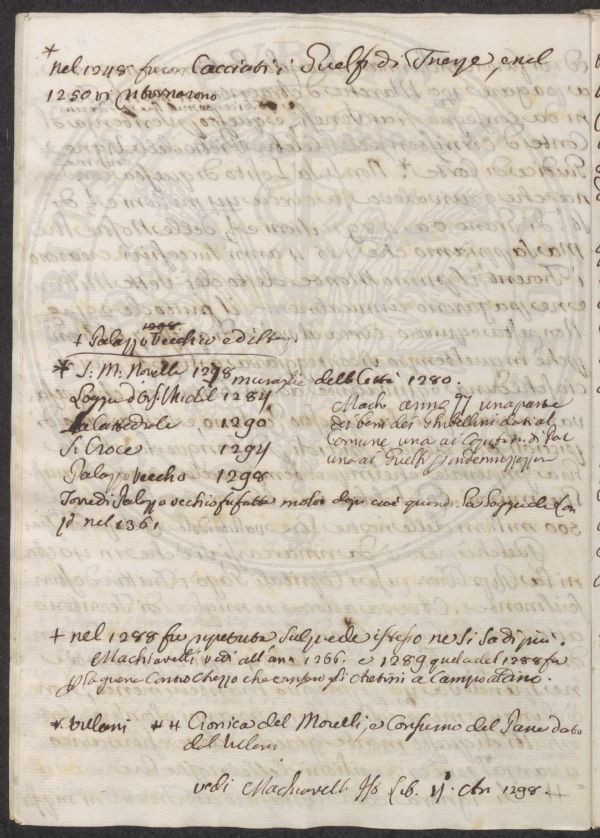 *
nel 1248 furon Cacciati i Guelfi di Firenze, e nel
1250 vi ritornarono
1298
+ Palazzo Vecchio edi
* S. M. Novella 1278
muraglie della Città 1280.
Loggia d'Ors. Michel 1284
La Cattedrale 1290
S. Croce 1294
Palazzo Vecchio 1298
Mach. anno 67 una parte
dei beni dei Ghibellini data al
Comune una ai Capitani di Par
una ai Guelfi p indennizzazione
Torre di Palazzo vecchio fu fatta molto dopo cioè quando la Loggia de
nel 1361
+ nel 1288 fu ripetuta sul piede istesso ne si sa di più.
Machiavelli vedi all'anno 1266. e 1289 quela del 1288 fu
p la guerra Contro che gli Aretini a Campaldino.
* Villani ++ Cronica del Morelli, e Consumo del Pane dato
dal Villani
vedi Machiavelli Lib. 1298.